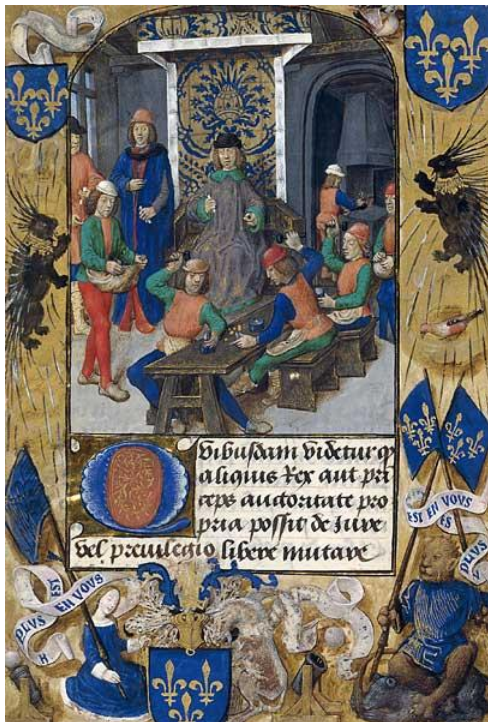 Quibusdam videtur q
aliquis Rex aut pri
ceps auctoritate pro
pria possit de iure
vel preuilegio libere mutare
PLVS EST
EN VOVS
EST EN VOVS
PLVS